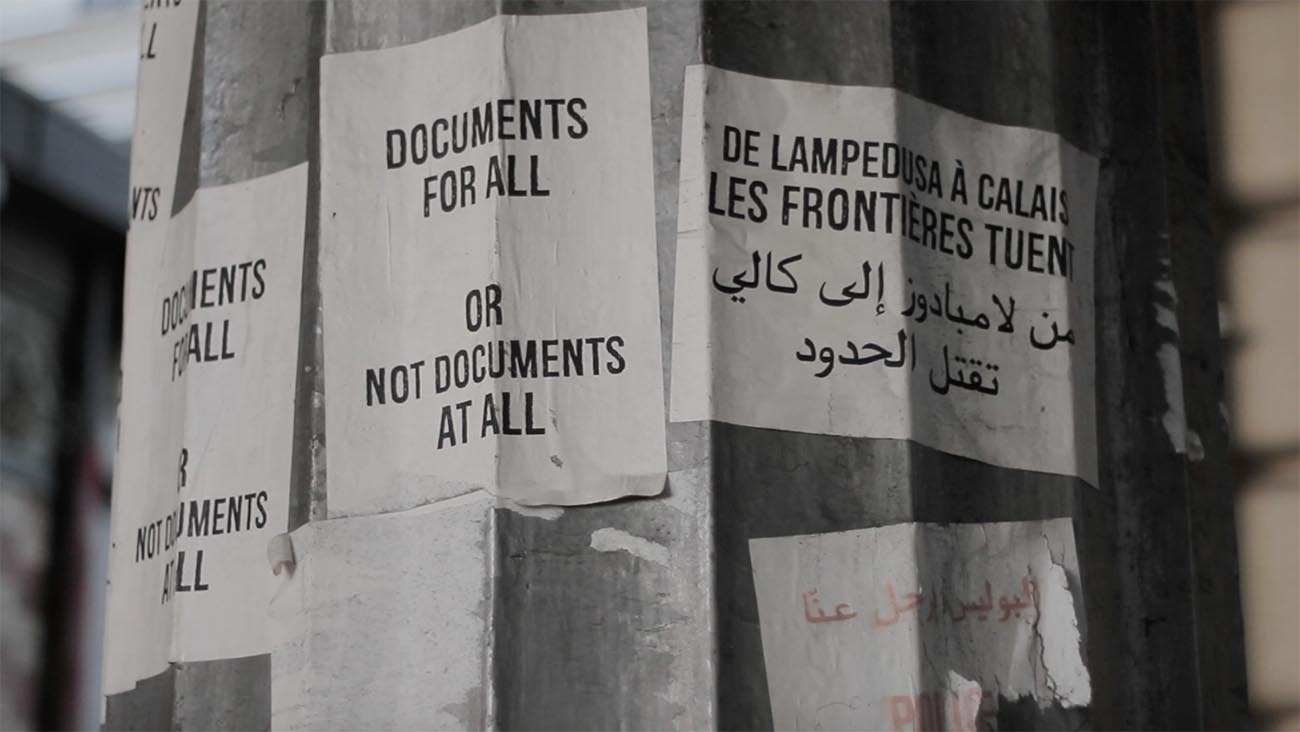 ALL
NTS
DOCUMENTS
FOR ALL
OR
NOT DOCUMENTS
AT ALL
DOCUMENTS
FOR ALL
OR
NOT DOCUMENTS
AT ALL
DE LAMPEDUSA À CALAIS
LES FRONTIÈRES TUENT
من لامبادوز إلى كالي
تقتل الحدود
البوليس رحل عنّا
POLICE